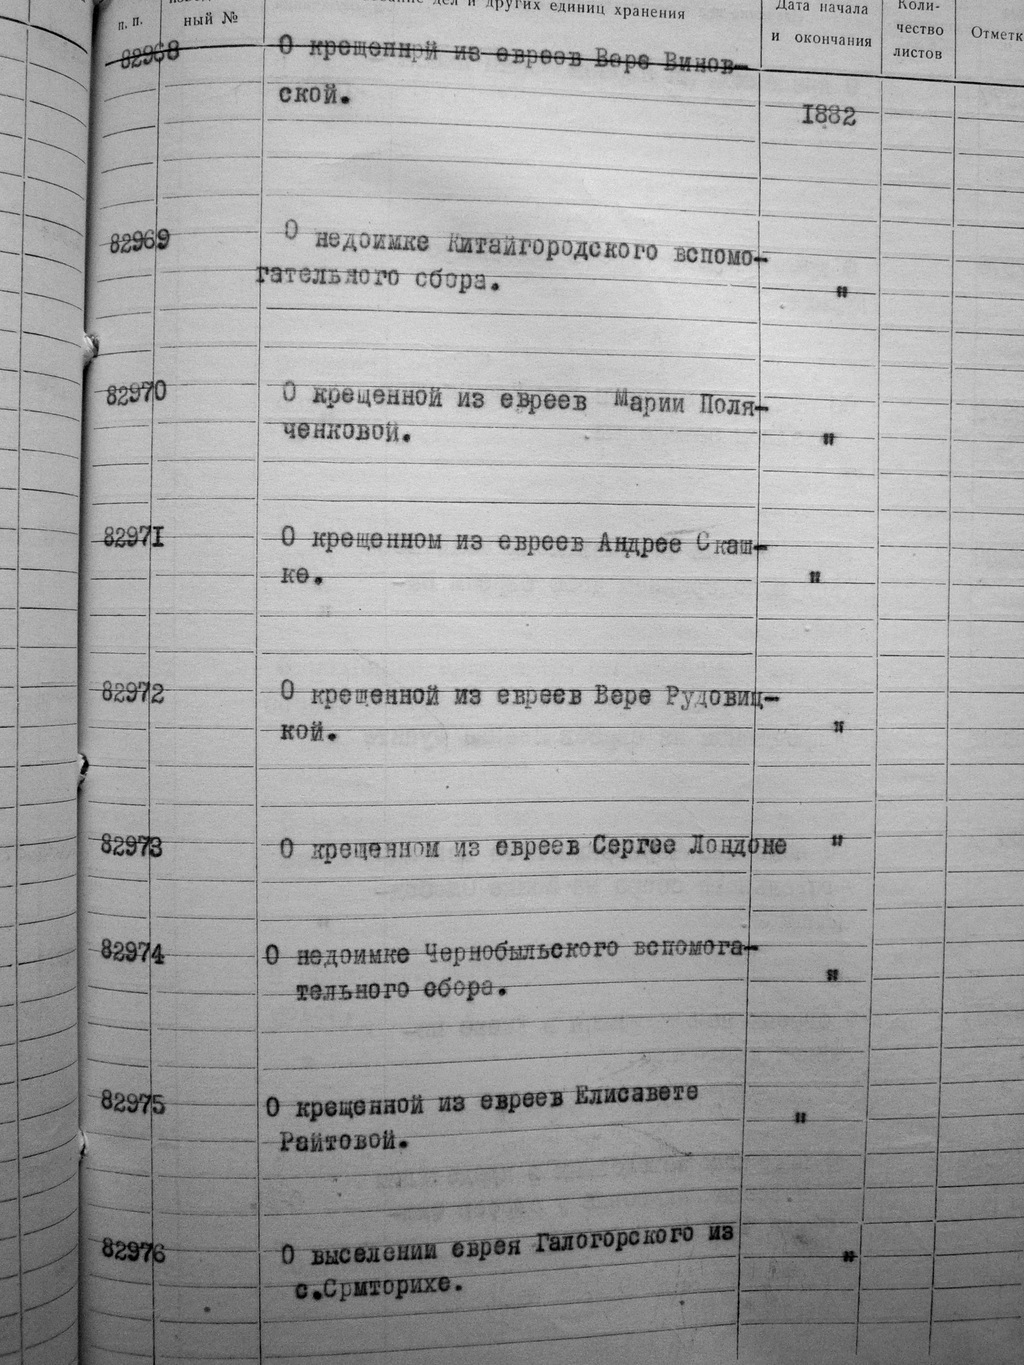 п. п.
ный №
дел и других единиц хранения
Дата начала
и окончания
Коли-
чество
листов
Отметк
82968 О крещенной из евреев Вере Винов-
ской.
1882
82969 О недоимке Китайгородского вспомо-
гательного сбора. "
82970 О крещенной из евреев Марии Поля-
ченковой. "
82971 О крещенном из евреев Андрее Скаш-
ке. "
82972 О крещенной из евреев Вере Рудовиц-
кой. "
82973 О крещенном из евреев Сергее Лондоне "
82974 О недоимке Чернобыльского вспомога-
тельного сбора. "
82975 О крещенной из евреев Елисавете
Райтовой. "
82976 О выселении еврея Галогорского из
с.Срмторихе. "